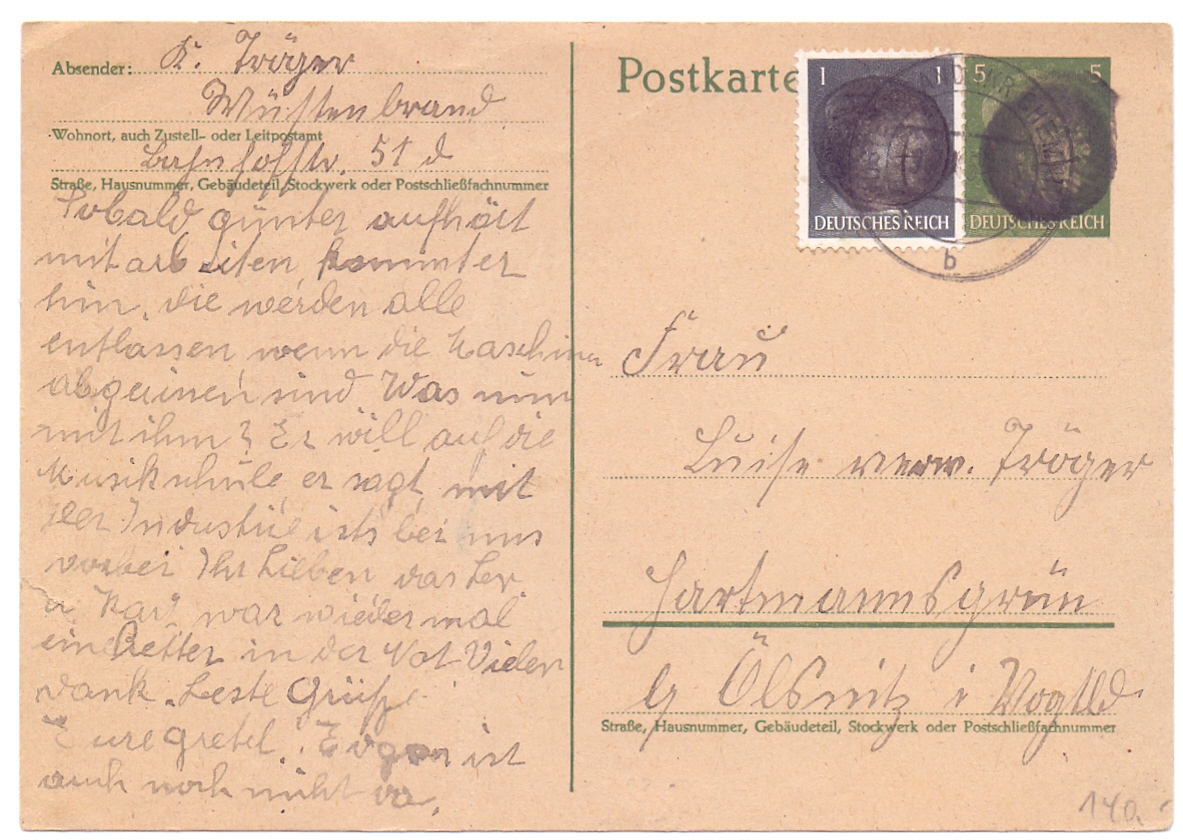 Absender: K. Tröger
Wüstenbrand
Wohnort, auch Zustell- oder Leitpostamt
Bahnhofstr. 51 d
Straße, Hausnummer, Gebäudeteil, Stockwerk oder Postschließfachnummer
Sobald günter aufhört
mit arbeiten kommter
hin. die werden alle
entlassen wenn die Maschinen
sind Was nun
mit ihm? Er will auf die
Musikschule er sagt mit
der Industrie ists bei uns
vorbei Ihr Lieben das
war wieder mal
ein Retter in der Not Vielen
dank. beste Grüße
Eure gretel. Eugen ist
auch noch nicht da.
Postkarte
1 1 5 5
DEUTSCHES REICH DEUTSCHES REICH
b
Frau
Luise verw. Tröger
Hartmannsgrün
b/ Ölsnitz i Vogtld.
Straße, Hausnummer, Gebäudeteil, Stockwerk oder Postschließfachnummer
140.-